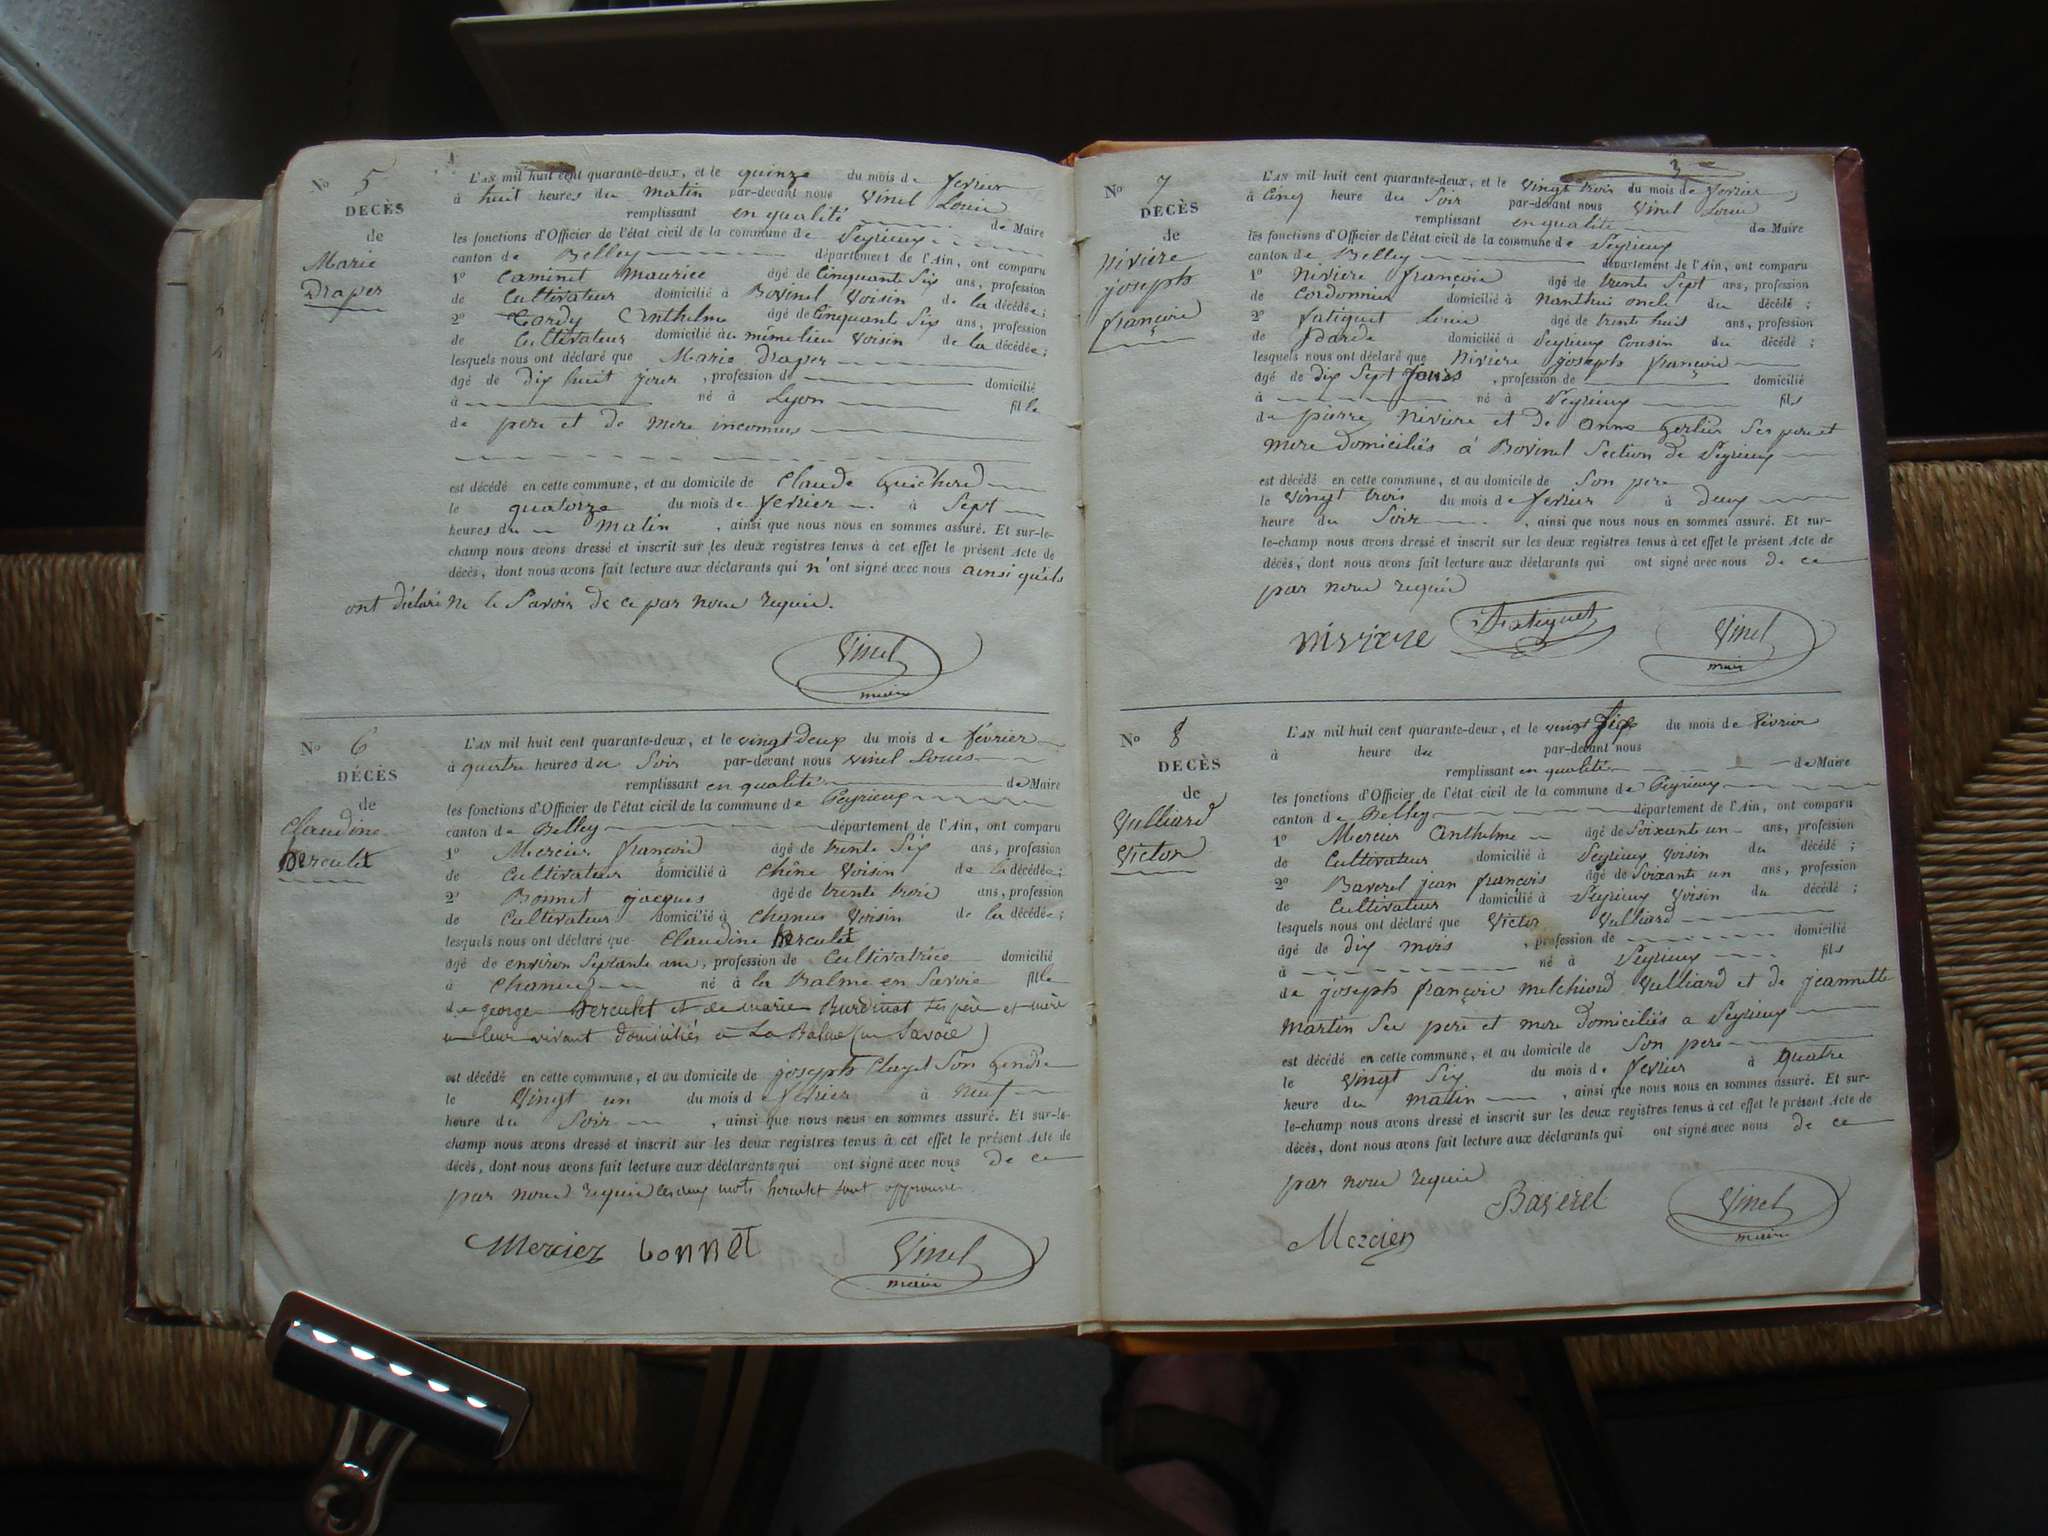 N.o 5
DECÈS
de
Marie
Draper
L'AN mil huit cent quarante-deux, et le quinze du mois de fevrier
à huit heures du matin par-devant nous Vinel Louis
remplissant en qualité de Maire
les fonctions d'Officier de l'état civil de la commune de Peyrieux
canton de Belley département de l'Ain, ont comparu
1o Caminet Maurice âgé de Cinquante Six ans, profession
de Cultivateur domicilié à Bovinel Voisin de la décédée;
2o Tardy Anthelme âgé de Cinquante Six ans, profession
de Cultivateur domicilié au même lieu Voisin de la décédée;
lesquels nous ont déclaré que Marie Draper
âgé de dix huit jour, profession de domicilié
à né à Lyon fille
de pere et de mere inconnus
est décédé en cette commune, et au domicile de Claude Guicherd
le quatorze du mois de fevrier à Sept
heures du matin, ainsi que nous nous en sommes assuré. Et sur-le-
champ nous avons dressé et inscrit sur les deux registres tenus à cet effet le présent Acte de
décès, dont nous avons fait lecture aux déclarants qui n'ont signé avec nous ainsi qu'ils
ont déclaré ne le Savoir de ce par nous requis.
Vinel
maire
N.o 6
DÉCÈS
de
Claudine
herculet
L'AN mil huit cent quarante-deux, et le vingt deux du mois de fevrier
à quatre heures du Soir par-devant nous Vinel Louis
remplissant en qualité de Maire
les fonctions d'Officier de l'état civil de la commune de Peyrieux
canton de Belley département de l'Ain, ont comparu
1o Mercier françois âgé de trente Six ans, profession
de Cultivateur domicilié à Chêne Voisin de la décédée;
2o Bonnet jacques âgé de trente trois ans, profession
de Cultivateur domicilié à Chanus Voisin de la décédée;
lesquels nous ont déclaré que Claudine herculet
âgé de environ Septante ans, profession de Cultivatrice domicilié
à Chanus né à la Balme en Savoie fille
de george herculet et de marie Burdinat Ses père et mère
en leur vivant domiciliés à La Balme (en Savoie)
est décédé en cette commune, et au domicile de joseph Clayet Son Gendre
le Vingt un du mois de fevrier à neuf
heure du Soir, ainsi que nous nous en sommes assuré. Et sur-le-
champ nous avons dressé et inscrit sur les deux registres tenus à cet effet le présent Acte de
décès, dont nous avons fait lecture aux déclarants qui ont signé avec nous de ce
par nous requis les deux mots herculet sont approuvés
Mercier bonnet Vinel
maire
3
N.o 7
DÉCÈS
de
niviere
joseph
françois
L'AN mil huit cent quarante-deux, et le Vingt trois du mois de fevrier
à Cinq heure du Soir par-devant nous Vinel Louis
remplissant en qualité de Maire
les fonctions d'Officier de l'état civil de la commune de Peyrieux
canton de Belley département de l'Ain, ont comparu
1o Niviere françois âgé de trente Sept ans, profession
de Cordonnier domicilié à nanthui oncle du décédé;
2o fatiguet Louis âgé de trente huit ans, profession
de garde domicilié à Peyrieux Cousin du décédé;
lesquels nous ont déclaré que Niviere joseph françois
âgé de dix Sept jours, profession de domicilié
à né à Peyrieux fils
de pierre Niviere et de Anne Gerlier Ses pere et
mere domiciliés à Bovinel Section de Peyrieux
est décédé en cette commune, et au domicile de Son pere
le Vingt trois du mois de fevrier à deux
heure du Soir, ainsi que nous nous en sommes assuré. Et sur-
le-champ nous avons dressé et inscrit sur les deux registres tenus à cet effet le présent Acte de
décès, dont nous avons fait lecture aux déclarants qui ont signé avec nous de ce
par nous requis
niviere fatiguet Vinel
maire
N.o 8
DECÈS
de
Vulliard
Victor
L'AN mil huit cent quarante-deux, et le vingt Six du mois de fevrier
à heure du par-devant nous
remplissant en qualité de Maire
les fonctions d'Officier de l'état civil de la commune de Peyrieux
canton de Belley département de l'Ain, ont comparu
1o Mercier Anthelme âgé de Soixante un ans, profession
de Cultivateur domicilié à Peyrieux Voisin du décédé;
2o Baverel jean françois âgé de Soixante un ans, profession
de Cultivateur domicilié à Peyrieux Voisin du décédé;
lesquels nous ont déclaré que Victor Vulliard
âgé de dix mois, profession de domicilié
à né à Peyrieux fils
de joseph françois melchiord Vulliard et de jeannette
Martin Ses pere et mere domiciliés a Peyrieux
est décédé en cette commune, et au domicile de Son pere
le Vingt Six du mois de fevrier à quatre
heure du matin, ainsi que nous nous en sommes assuré. Et sur-
le-champ nous avons dressé et inscrit sur les deux registres tenus à cet effet le présent Acte de
décès, dont nous avons fait lecture aux déclarants qui ont signé avec nous de ce
par nous requis
Mercier Baverel Vinel
maire